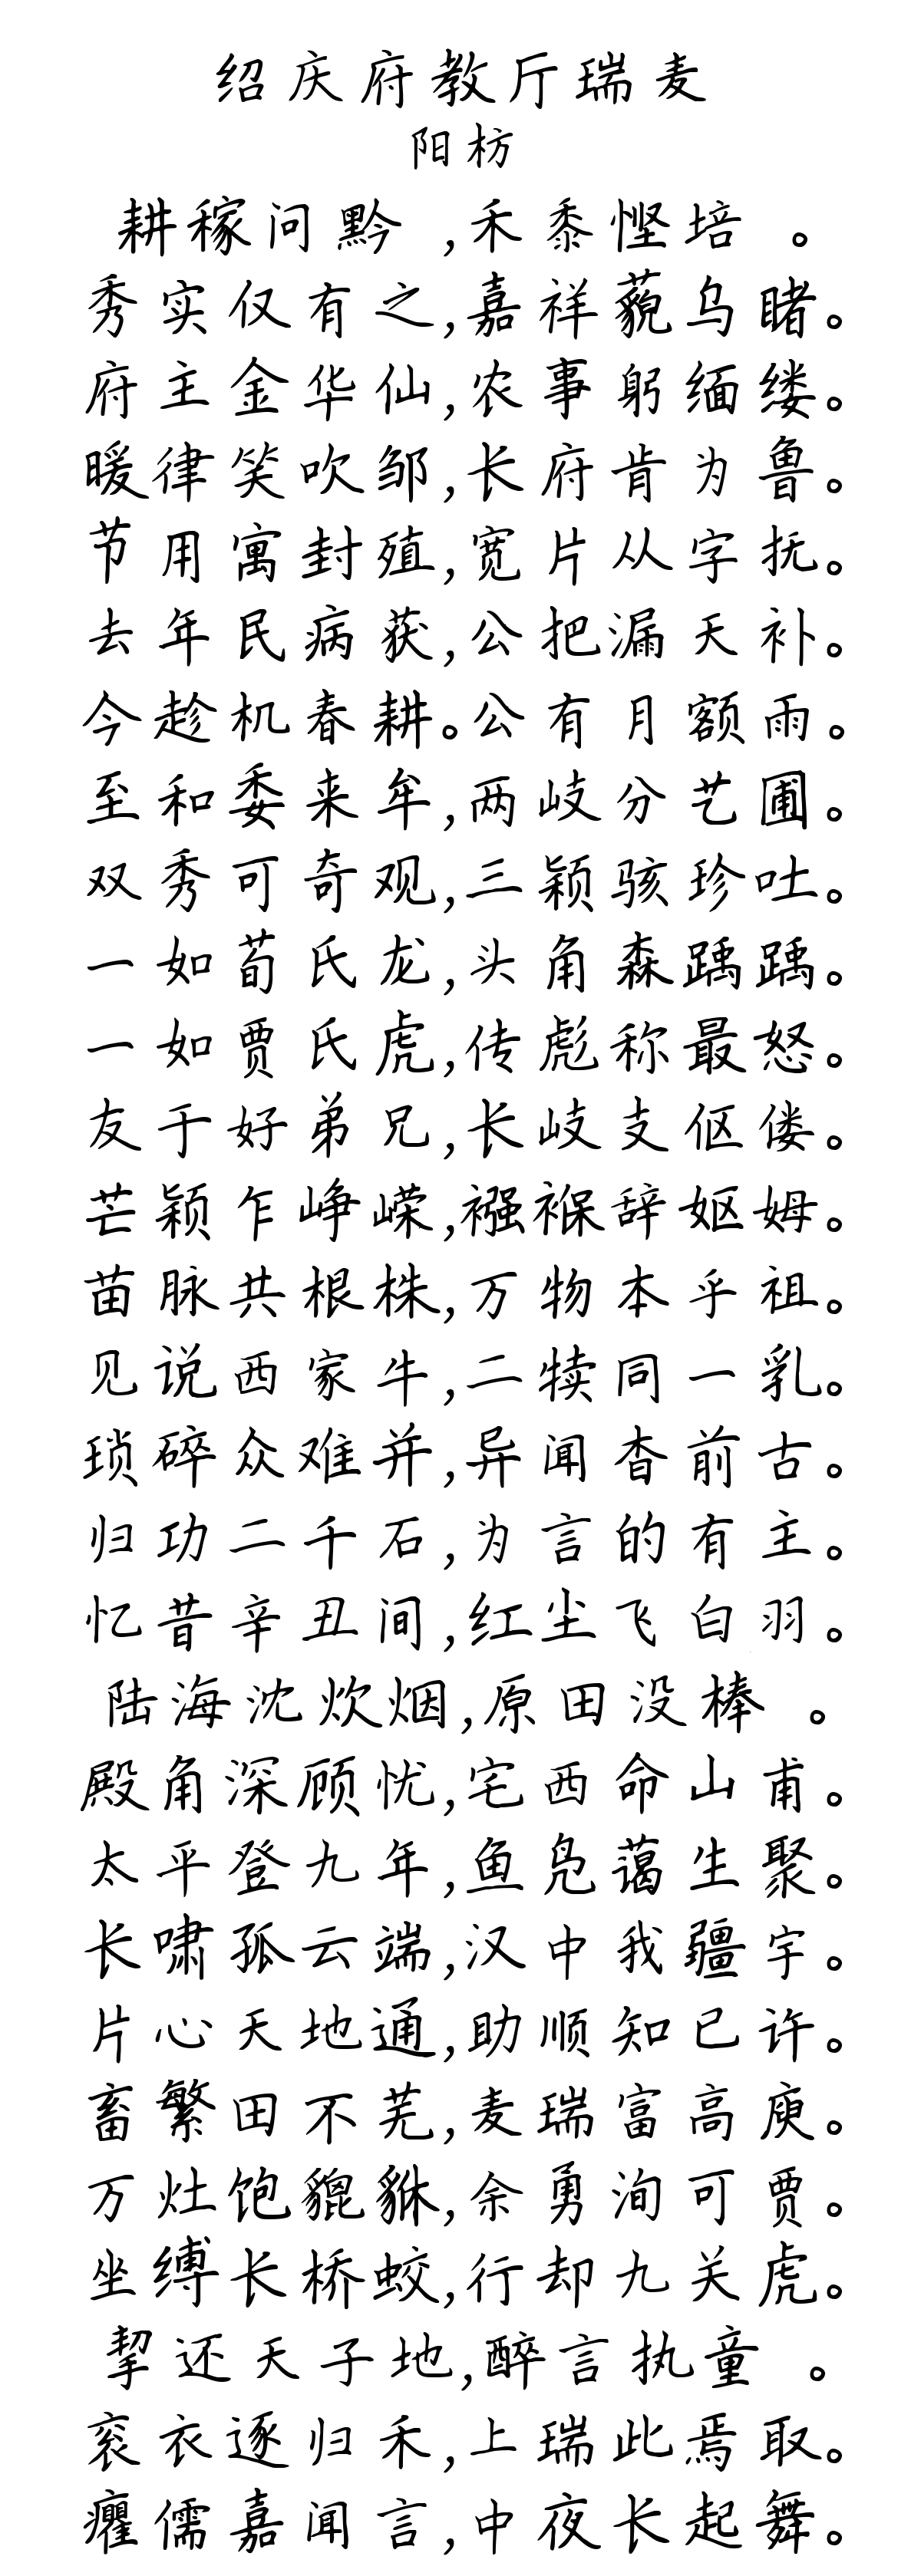 绍庆府教厅瑞麦
阳枋
耕稼问黔 ,禾黍悭培 。
秀实仅有之,嘉祥藐乌睹。
府主金华仙,农事躬缅缕。
暖律笑吹邹,长府肯为鲁。
节用寓封殖,宽片从字抚。
去年民病获,公把漏天补。
今趁机春耕。公有月额雨。
至和委来牟,两歧分艺圃。
双秀可奇观,三颖骇珍吐。
一如荀氏龙,头角森踽踽。
一如贾氏虎,传彪称最怒。
友于好弟兄,长歧支伛偻。
芒颖乍峥嵘,襁褓辞妪姆。
苗脉共根株,万物本乎祖。
见说西家牛,二犊同一乳。
琐碎众难并,异闻杳前古。
归功二千石,为言的有主。
忆昔辛丑间,红尘飞白羽。
陆海沈炊烟,原田没榛 。
殿角深顾忧,宅西命山甫。
太平登九年,鱼凫蔼生聚。
长啸孤云端,汉中我疆宇。
片心天地通,助顺知已许。
畜繁田不芜,麦瑞富高庾。
万灶饱貔貅,余勇洵可贾。
坐缚长桥蛟,行却九关虎。
挈还天子地,醉言执童 。
衮衣逐归禾,上瑞此焉取。
癯儒嘉闻言,中夜长起舞。